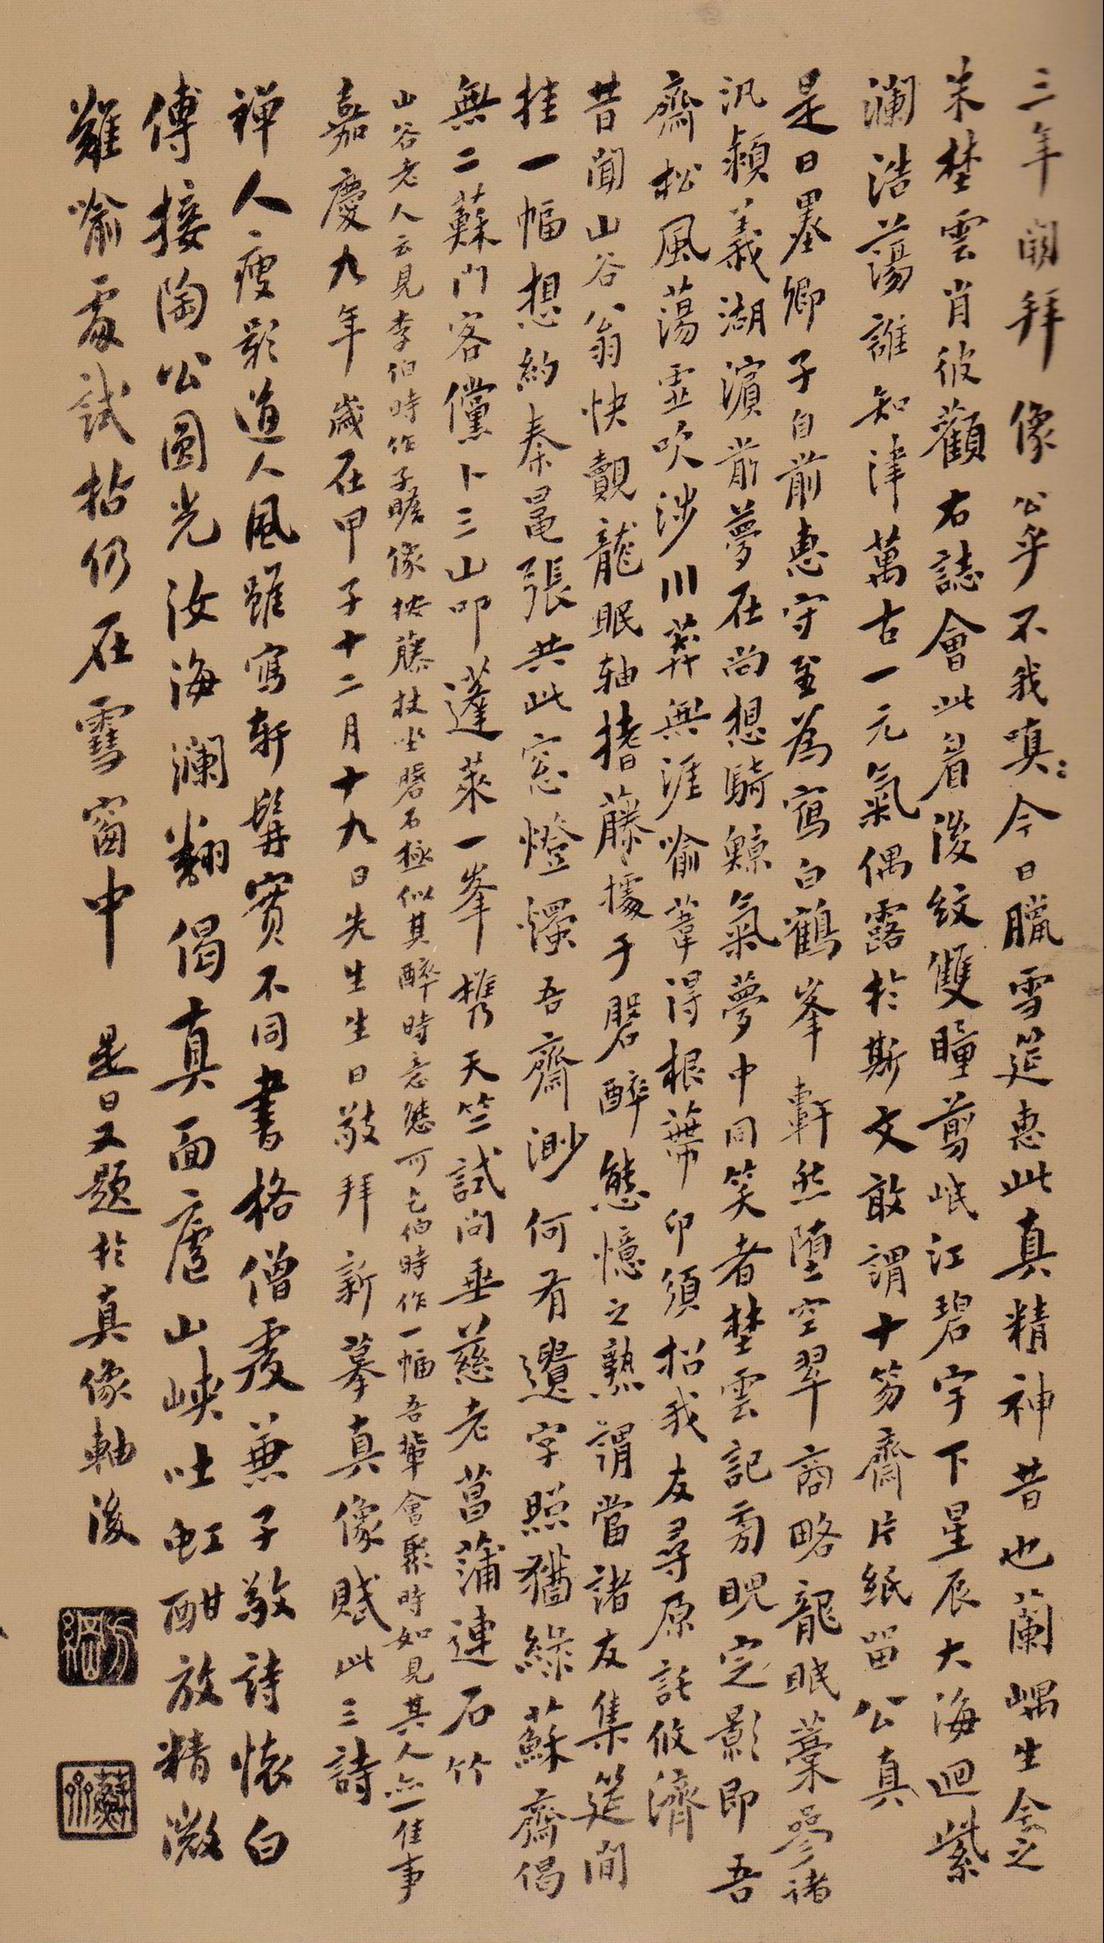 三年關拜像公乎不我嗔今日臘雪筵惠此真精神昔也蘭嵎生今之
朱埜雲肖彼顴右誌會此眉後紋雙瞳剪岷江碧宇下星辰大海迴紫
瀾浩蕩誰知津萬古一元氣偶露於斯文敢謂十笏齋片紙留公真
是日墨卿子自前惠守至為寫白鶴峯軒然墮空翠商略龍眠藁參諸
汎潁義湖濵前夢在尚想騎鯨氣夢中同笑者埜雲記菊睨定影即吾
齋松風蕩雲吹涉川莽無涯喻葦得根蒂卬須招我友尋原託攸濟
昔聞山谷翁快覿龍眠軸搘藤據于磐醉態憶之熟謂當諸友集筵間
挂一幅想約秦鼂張共此窓燈燭吾齋渺何有遺字照猶綠蘇齋偈
無二蘇門客儻卜三山叩蓬萊一峯携天竺試問垂慈老菖蒲連石竹
山谷老人云見李伯時作子瞻像按藤杖坐磐石極似其醉時意態可乞伯時作一幅吾輩會聚時如見其人亦一佳事
嘉慶九年歲在甲子十二月十九日先生生日敬拜新摹真像賦此三詩
禪人瘦影道人風雖寫軒髯實不同書格僧虔兼子敬詩懷白
傅接陶公圓光汝海瀾翻偈真面廬山峽吐虹酣放精微
難喻處試拈仍在雪窗中 是日又題於真像軸後
方綱
蘇齋